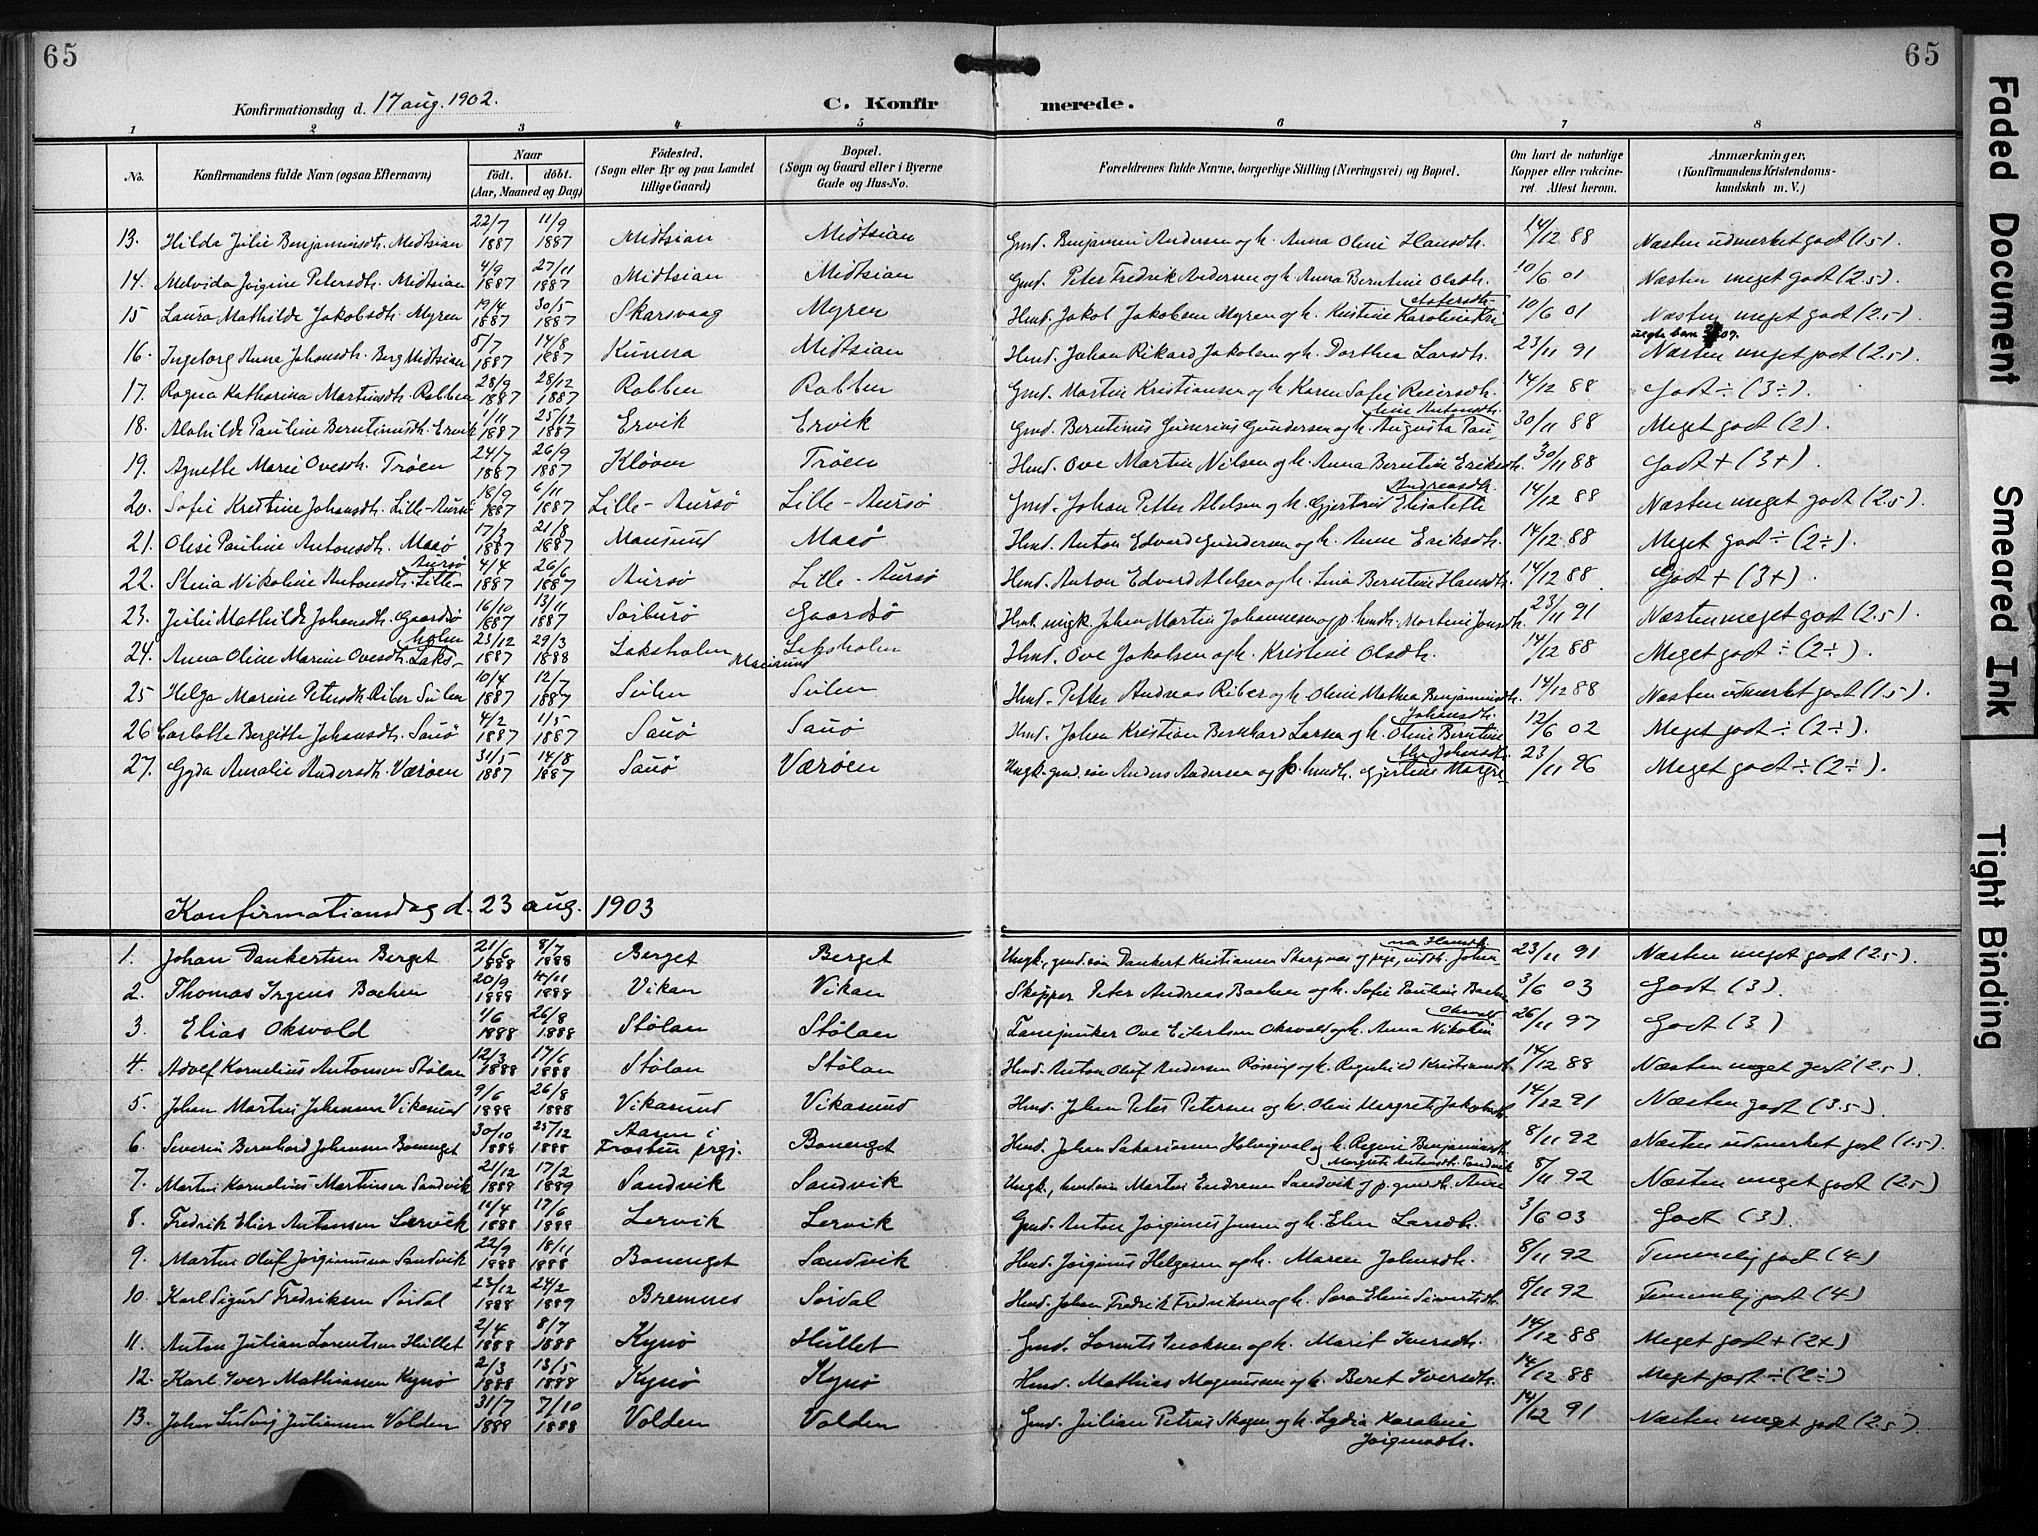 65
65
Konfirmationsdag d. 17 aug. 1902.
C. Konfirmerede.
1 2 3 4 5 6 7 8
No.
Konfirmandens fulde Navn (ogsaa Efternavn)
Naar
født. døbt.
(Aar, Maaned og Dag)
Fødested.
(Sogn eller By og paa Landet
tillige Gaard)
Bopæl.
(Sogn og Gaard eller i Byerne
Gade og Hus-No.
Forældrenes fulde Navne, borgerlige Stilling (Næringsvei) og Bopæl.
Om havt de naturlige
Kopper eller vakcine-
ret. Attest herom.
Anmærkninger,
(Konfirmandens Kristendoms-
kundskab m. V.)
13. Hilda Julie Benjaminsdtr. Midtsian 22/7 1887 11/9 1887 Midtsian Midtsian Gmd. Benjamin Andersen og h. Anna Oline Hansdtr. 14/12 88 Næsten udmerket godt (1.5).
14. Melvida Jørgine Petersdtr. Midtsian 4/9 1887 27/11 1887 Midtsian Midtsian Gmd. Peter Fredrik Andersen og h. Anna Berntine Olsdtr. 10/6 01 Næsten meget godt (2.5).
15 Laura Mathilde Jakobsdtr. Myren 19/4 1887 30/5 1887 Skarsvaag Myren Hmd. Jakob Jakobsen Myren og h. Kristine Karoline 10/6 01 Næsten meget godt (2.5)
16. Ingeborg Anna Johansdtr. Berg Midtsian 5/7 1887 14/8 1887 Kunna Midtsian Hmd. Johan Rikard Jakobsen og h. Dorthea Larsdtr. 23/11 91 Næsten meget godt (2.5).
17. Ragna Katharina Martinsdtr. Rabben 28/9 1887 28/12 1887 Rabben Rabben Gmd. Martin Kristiansen og h. Karen Sofie Reiersdtr. 14/12 88 Godt ÷ (3÷).
18. Alohilde Pauline Berntinusdtr. Ervik 1/11 1887 25/12 1887 Ervik Ervik Gmd. Berntinus Gunerius Gundersen og h. Augusta Pauline Antonsdtr. 30/11 88 Meget godt (2).
19. Agnette Marie Ovesdtr. Trøen 24/7 1887 26/9 1887 Kløven Trøen Hmd. Ove Martin Nilsen og h. Anna Berntine Eriksdtr. 30/11 88 Godt + (3+).
20. Sofie Kristine Johansdtr. Lille-Aursø 18/9 1887 6/11 1887 Lille-Aursø Lille-Aursø Gmd. Johan Petter Abelsen og h. Gjertrud Elisabeth Andreasdtr. 14/12 88 Næsten meget godt (2.5)
21. Oline Pauline Antonsdtr. Maaø 17/3 1887 21/8 1887 Mausund Maaø Hmd. Anton Edvard Gundersen og h. Anne Eriksdtr. 14/12 88 Meget godt ÷ (2÷).
22. Stina Nikoline Antonsdtr. Lille-Aursø 4/4 1887 26/6 1887 Aursø Lille-Aursø Hmd. Anton Edvard Abelsen og h. Lina Berntine Hansdtr. 14/12 88. Godt + (3+).
23. Julie Mathilde Johansdtr. Gaardsø 16/10 1887 13/11 1887 Sørburø Gaardsø Hmd. ungk. Johan Martin Johannesen og p. hmdtr. Martine Jonsdtr. 23/11 91 Næsten meget godt (2.5).
24. Anna Oline Marine Ovesdtr. Laksholm 23/12 1887 29/3 1888 Laksholm Mausund Laksholm Hmd. Ove Jakobsen og h. Kristine Olsdtr. 14/12 88 Meget godt ÷ (2÷).
25 Helga Marine Petersdtr. Riber Sulen 10/4 1887 12/7 1887 Sulen Sulen Hmd. Petter Andreas Riber og h. Oline Mathea Benjaminsdtr. 14/12 88 Næsten udmerket godt (1.5).
26 Carlotte Bergitte Johansdtr. Sauø 4/2 1887 1/5 1887 Sauø Sauø Hmd. Johan Kristian Bernhard Larsen og h. Oline Berntine Johansdtr. 12/6 02 Meget godt ÷ (2÷).
27. Gyda Amalie Andersdtr. Værøen 31/5 1887 14/8 1887 Sauø Værøen Ungk. gmd. søn Anders Andersen og p. hmdtr. Gjertine Margrethe Johansdtr. 23/11 96 Meget godt ÷ (2÷).
Konfirmationsdag d. 23 aug. 1903
1. Johan Dankertsen Berget 21/6 1888 8/7 1888 Berget Berget Ungk., gmd. søn Dankert Kristiansen og pige, indtr. Johanna Hansdtr. 23/11 91 Næsten meget godt (2.5).
2. Thomas Irgens Bachen 20/9 1888 4/11 1888 Vikan Vikan Skipper Peter Andreas Bachen og h. Sofie Pauline Bachen 3/6 03 Godt (3)
3. Elias Oksvold 1/6 1888 26/8 1888 Stølan Stølan Fanejunker Ove Eilertsen Oksvold og h. Anna Nikolin Oksvold 26/11 97 Godt (3)
4. Adolf Kornelius Antonsen Stølan 12/3 1888 17/6 1888 Stølan Stølan Hmd. Anton Oluf Andersen Rossing og h. Regnhild Kristensdtr. 14/12 88 Næsten meget godt (2.5)
5. Johan Martin Johansen Vikasund 9/6 1888 26/8 1888 Vikasund Vikasund Hmd. Johan Peter Petersen og h. Oline Margrete Jakobsdtr. 14/12 91 Næsten godt (3.5)
6. Severin Bernhard Johansen Bonenget 30/10 1888 25/12 1888 Aasen i Frosten prgj. Bonenget Hmd. Johan Sakariassen og h. Regine Benjaminsdtr. 8/11 92 Næsten udmerket godt (1.5).
7. Martin Kornelius Martinsen Sandvik 21/12 1888 17/2 1889 Sandvik Sandvik Ungk., hmd. søn Martin Endresen Sandvik og p. gmdtr. Anne Margrete Antonsdtr. Sandvik 8/11 92 Næsten meget godt (2.5)
8. Fredrik Elier Antonsen Lervik 14/4 1888 17/6 1888 Lervik Lervik Gmd. Anton Jørginus Jensen og h. Elen Larsdtr. 3/6 03 Godt (3).
9. Martin Oluf Jørginusen Sandvik 22/9 1888 18/11 1888 Bonenget Sandvik Hmd. Jørginus Helgesen og h. Maren Johnsdtr. 8/11 92 Temmelig godt (4)
10. Karl Sigurd Fredriksen Sørdal 23/12 1888 24/2 1889 Bremnes Sørdal Hmd. Johan Fredrik Fredriksen og h. Sara Eline Sivertsdtr. 8/11 92 Temmelig godt (4)
11. Anton Julian Lorentsen Hullet 2/4 1888 8/7 1888 Kynø Hullet Gmd. Lorents og h. Marit Iversdtr. 14/12 88 Meget godt + (2+)
12. Karl Iver Mathiassen Kynø 2/3 1888 13/5 1888 Kynø Kynø Hmd. Mathias Magnussen og h. Beret Iversdtr. 14/12 88 Meget godt ÷ (2÷)
13. Johan Ludvig Juliansen Volden 31/7 1888 7/10 1888 Volden Volden Gmd. Julian Petrus Skogen og h. Lydia Karoline Jørgensdtr. 14/12 91 Næsten meget godt (2.5).
Faded Document
Smeared Ink
Tight Binding